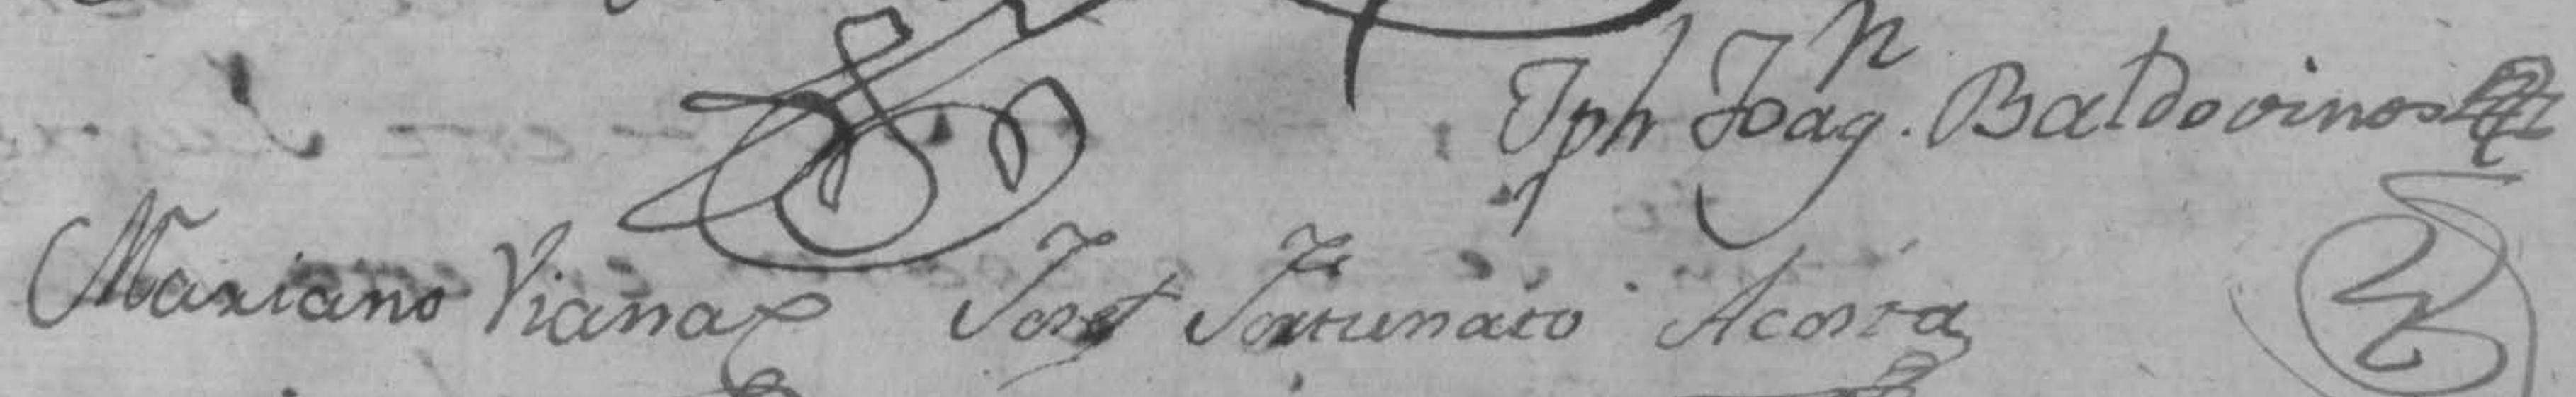 Jph Joaqn. Baldovinos
Mariano Viana Josef Fortunato Acosta